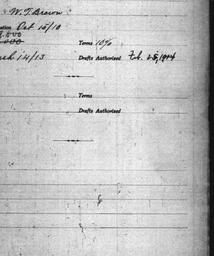 W. T. Brown
ation Oct 15/10
8,000
,000 Terms 10%
ch 14/13 Drafts Authorized Feb. 25, 1914
Terms
Drafts Authorized